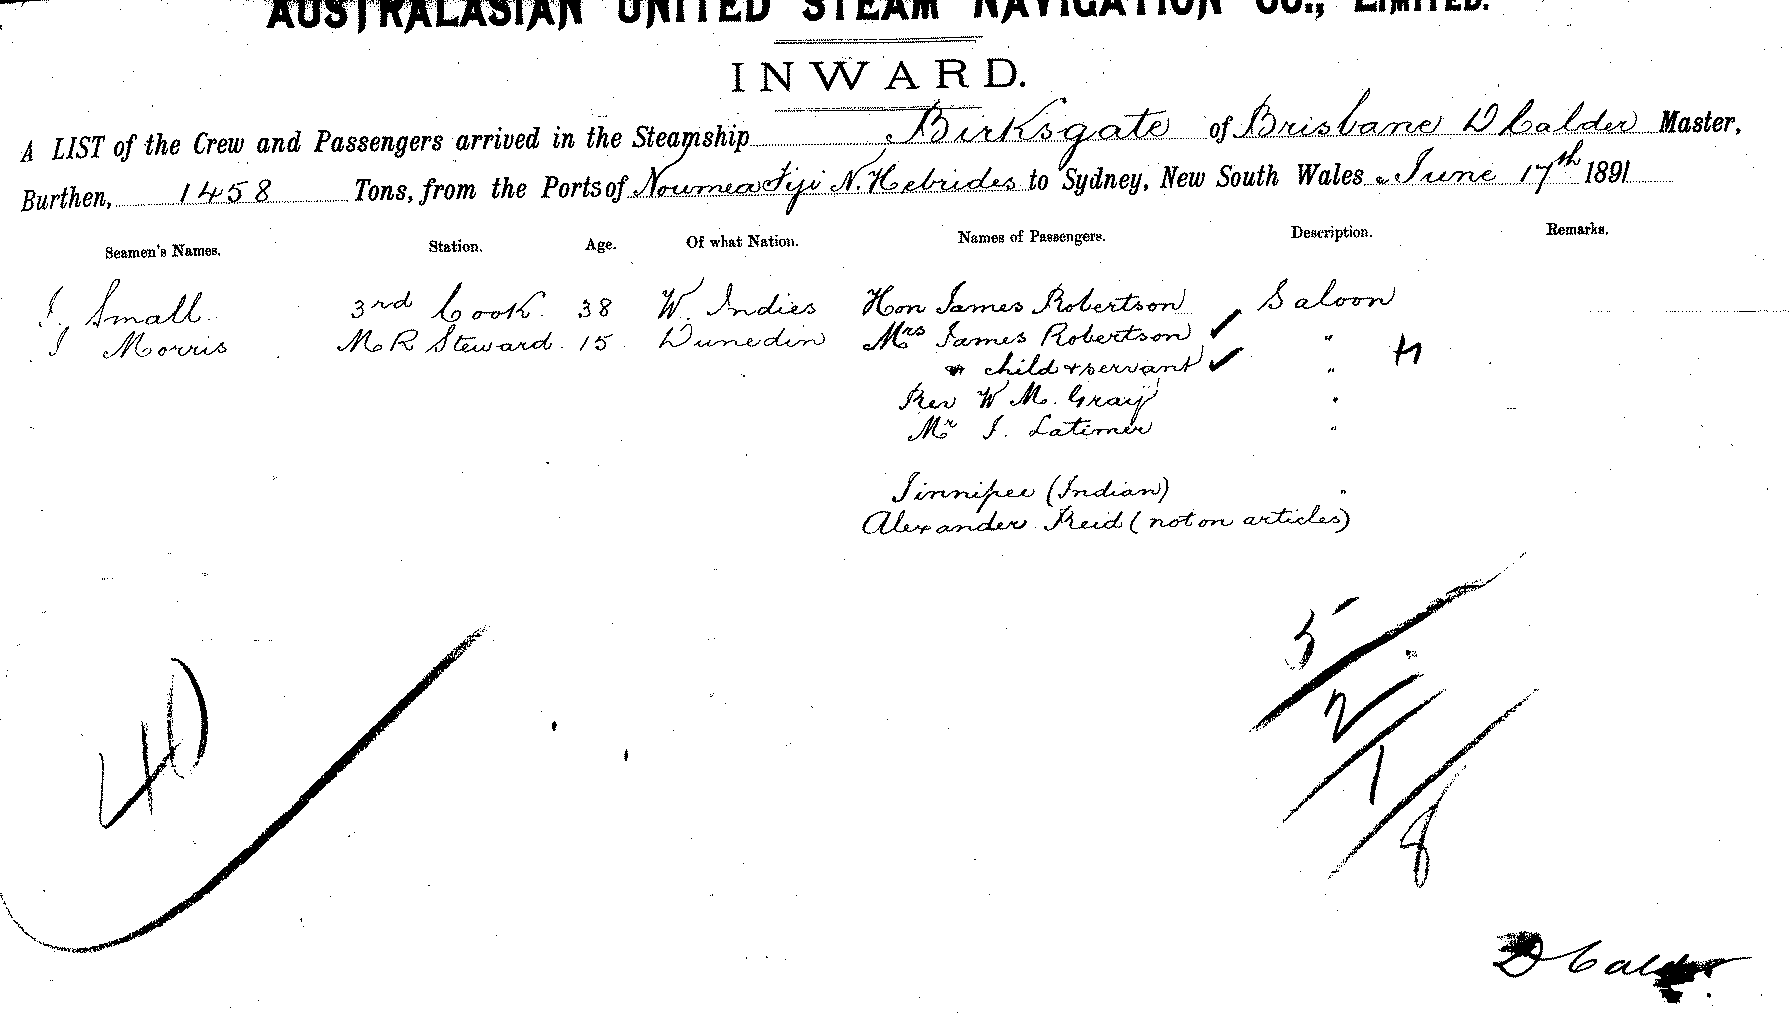 AUSTRALASIAN UNITED STEAM NAVIGATION CO., LIMITED.
INWARD.
A LIST of the Crew and Passengers arrived in the Steamship Birksgate of Brisbane D Calder Master,
Burthen, 1458 Tons, from the Ports of Noumea Fiji N. Hebrides to Sydney, New South Wales June 17th 1891
Seamen's Names. Station. Age. Of what Nation. Names of Passengers. Description. Remarks.
J. Small 3rd Cook 38 W. Indies Hon James Robertson Saloon
J Morris M R Steward 15 Dunedin Mrs James Robertson "
" child & servant "
Rev W M. Gray "
Mr J. Latimer "
Jinnipee (Indian) "
Alexander Reid (not on articles)
40
5
2
1
8
D Calder